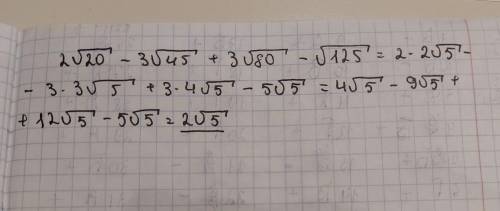 2√20 - 3√45 + 3√80 - √125 = 2·2√5 -
- 3·3√5 + 3·4√5 - 5√5 = 4√5 - 9√5 +
+ 12√5 - 5√5 = 2√5